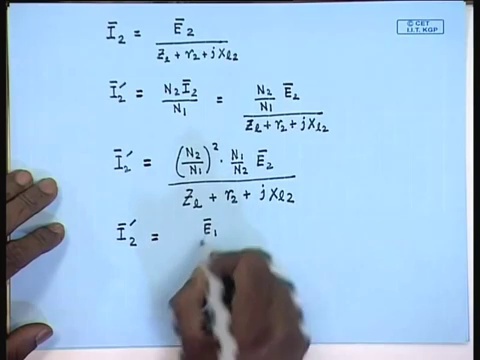 © CET
I.I.T. KGP
Ī₂ = Ē₂ / (Z_l + r₂ + jX_l2)
Ī₂′ = N₂Ī₂ / N₁ = (N₂/N₁) Ē₂ / (Z_l + r₂ + jX_l2)
Ī₂′ = (N₂/N₁)² · (N₁/N₂) Ē₂ / (Z_l + r₂ + jX_l2)
Ī₂′ = Ē₁